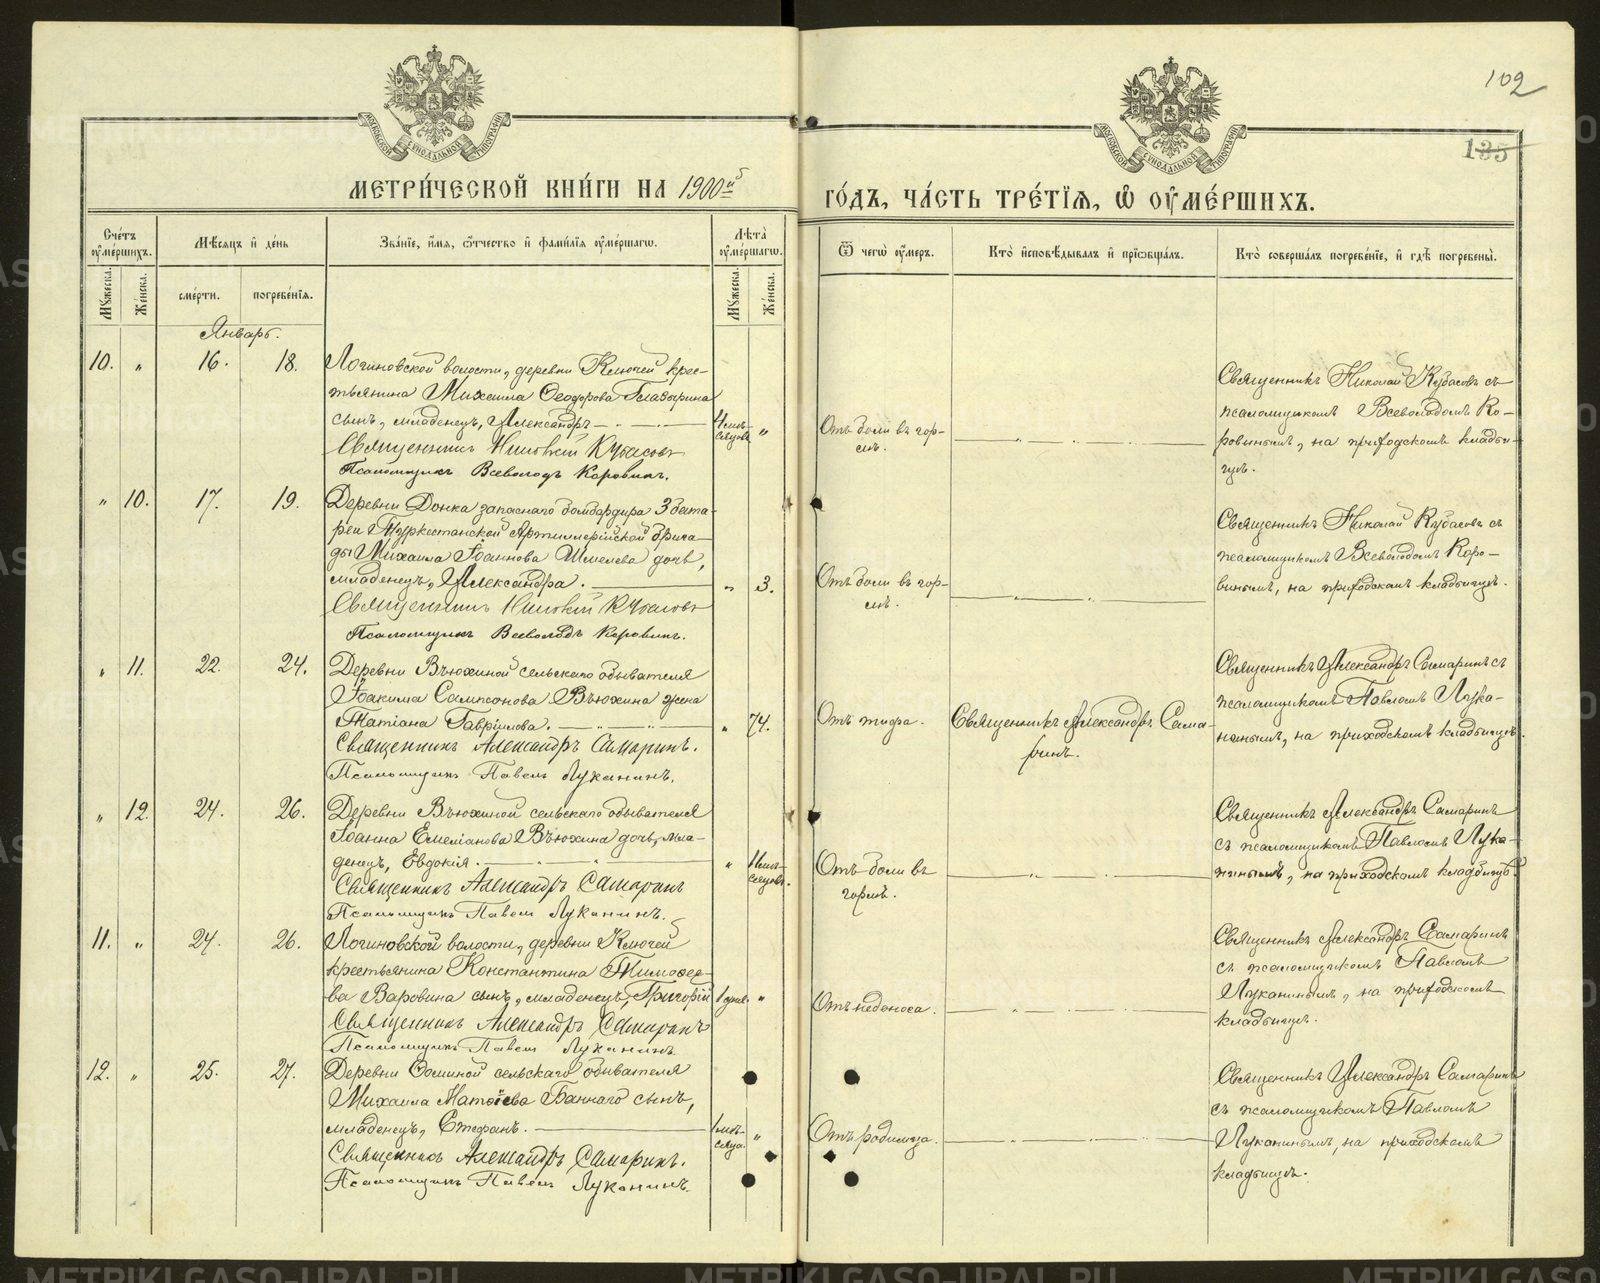 102
135
МОСКОВСКОЙ СѴНОДАЛЬНОЙ ТИПОГРАФІИ
МОСКОВСКОЙ СѴНОДАЛЬНОЙ ТИПОГРАФІИ
МЕТРИ́ЧЕСКОЙ КНИ́ГИ НА 1900й
ГО́ДЪ, ЧА́СТЬ ТРЕ́ТІѦ, Ѡ҆ ОУ҆МЕ́РШИХЪ.
Сче́тъ оу҆ме́ршихъ.
Мѣ́сяцъ и҆ де́нь
Зва́ніе, и҆́мѧ, ѻ҆́тчество и҆ фами́лія оу҆ме́ршагѡ.
Лѣ́та оу҆ме́ршагѡ.
Ѿ чегѡ̀ оу҆́меръ.
Кто̀ и҆сповѣ́дывалъ и҆ прїѡбща́лъ.
Кто̀ соверша́лъ погребе́ніе, и҆ гдѣ̀ погребены̀.
Мꙋ́жеска.
Же́нска.
сме́рти.
погребе́нія.
Мꙋ́жеска.
Же́нска.
Январь.
10. „ 16. 18.
Логиновской волости, деревни Ключей крес-
тьянина Михаила Ѳеодорова Глазырина
сынъ, младенецъ, Александръ
4 мѣ-
сяцовъ „
Священникъ Николай Кубасовъ
Псаломщикъ Всеволодъ Коровинъ.
Отъ боли въ гор-
лѣ.
Священникъ Николай Кубасовъ съ
псаломщикомъ Всеволодомъ Ко-
ровинымъ, на приходскомъ кладби-
щѣ.
„ 10. 17. 19.
Деревни Донка запаснаго бомбардира 3 бата-
реи Туркестанской Артиллерійской брига-
ды Михаила Іоаннова Шмелева дочь,
младенецъ, Александра.
„ 3.
Священникъ Николай Кубасовъ
Псаломщикъ Всеволодъ Коровинъ.
Отъ боли въ гор-
лѣ.
Священникъ Николай Кубасовъ съ
псаломщикомъ Всеволодомъ Коро-
винымъ, на приходскомъ кладбищѣ.
„ 11. 22. 24.
Деревни Вьюхиной сельскаго обывателя
Іоакима Сампсонова Вьюхина жена
Татіана Гаврілова.
„ 74.
Священникъ Александръ Самаринъ.
Псаломщикъ Павелъ Луканинъ.
Отъ тифа.
Священникъ Александръ Сама-
ринъ.
Священникъ Александръ Самаринъ съ
псаломщикомъ Павломъ Лука-
нинымъ, на приходскомъ кладбищѣ.
„ 12. 24. 26.
Деревни Вьюхиной сельскаго обывателя
Іоанна Емеліанова Вьюхина дочь, мла-
денецъ, Евдокія.
„ 11 мѣ-
сяцовъ.
Священникъ Александръ Самаринъ
Псаломщикъ Павелъ Луканинъ.
Отъ боли въ
горлѣ.
Священникъ Александръ Самаринъ
съ псаломщикомъ Павломъ Лука-
нинымъ, на приходскомъ кладбищѣ.
11. „ 24. 26.
Логиновской волости, деревни Ключей
крестьянина Константина Тимоѳее-
ва Варовина сынъ, младенецъ, Григорій
1 дня. „
Священникъ Александръ Самаринъ
Псаломщикъ Павелъ Луканинъ
Отъ недоноса.
Священникъ Александръ Самаринъ
съ псаломщикомъ Павломъ
Луканинымъ, на приходскомъ
кладбищѣ.
12. „ 25. 27.
Деревни сельскаго обывателя
Михаила Матѳіева Баннаго сынъ,
младенецъ, Стефанъ.
1 мѣ-
сяца. „
Священникъ Александръ Самаринъ.
Псаломщикъ Павелъ Луканинъ.
Отъ родимца.
Священникъ Александръ Самаринъ
съ псаломщикомъ Павломъ
Луканинымъ, на приходскомъ
кладбищѣ.
METRIKI.GASO-URAL.RU